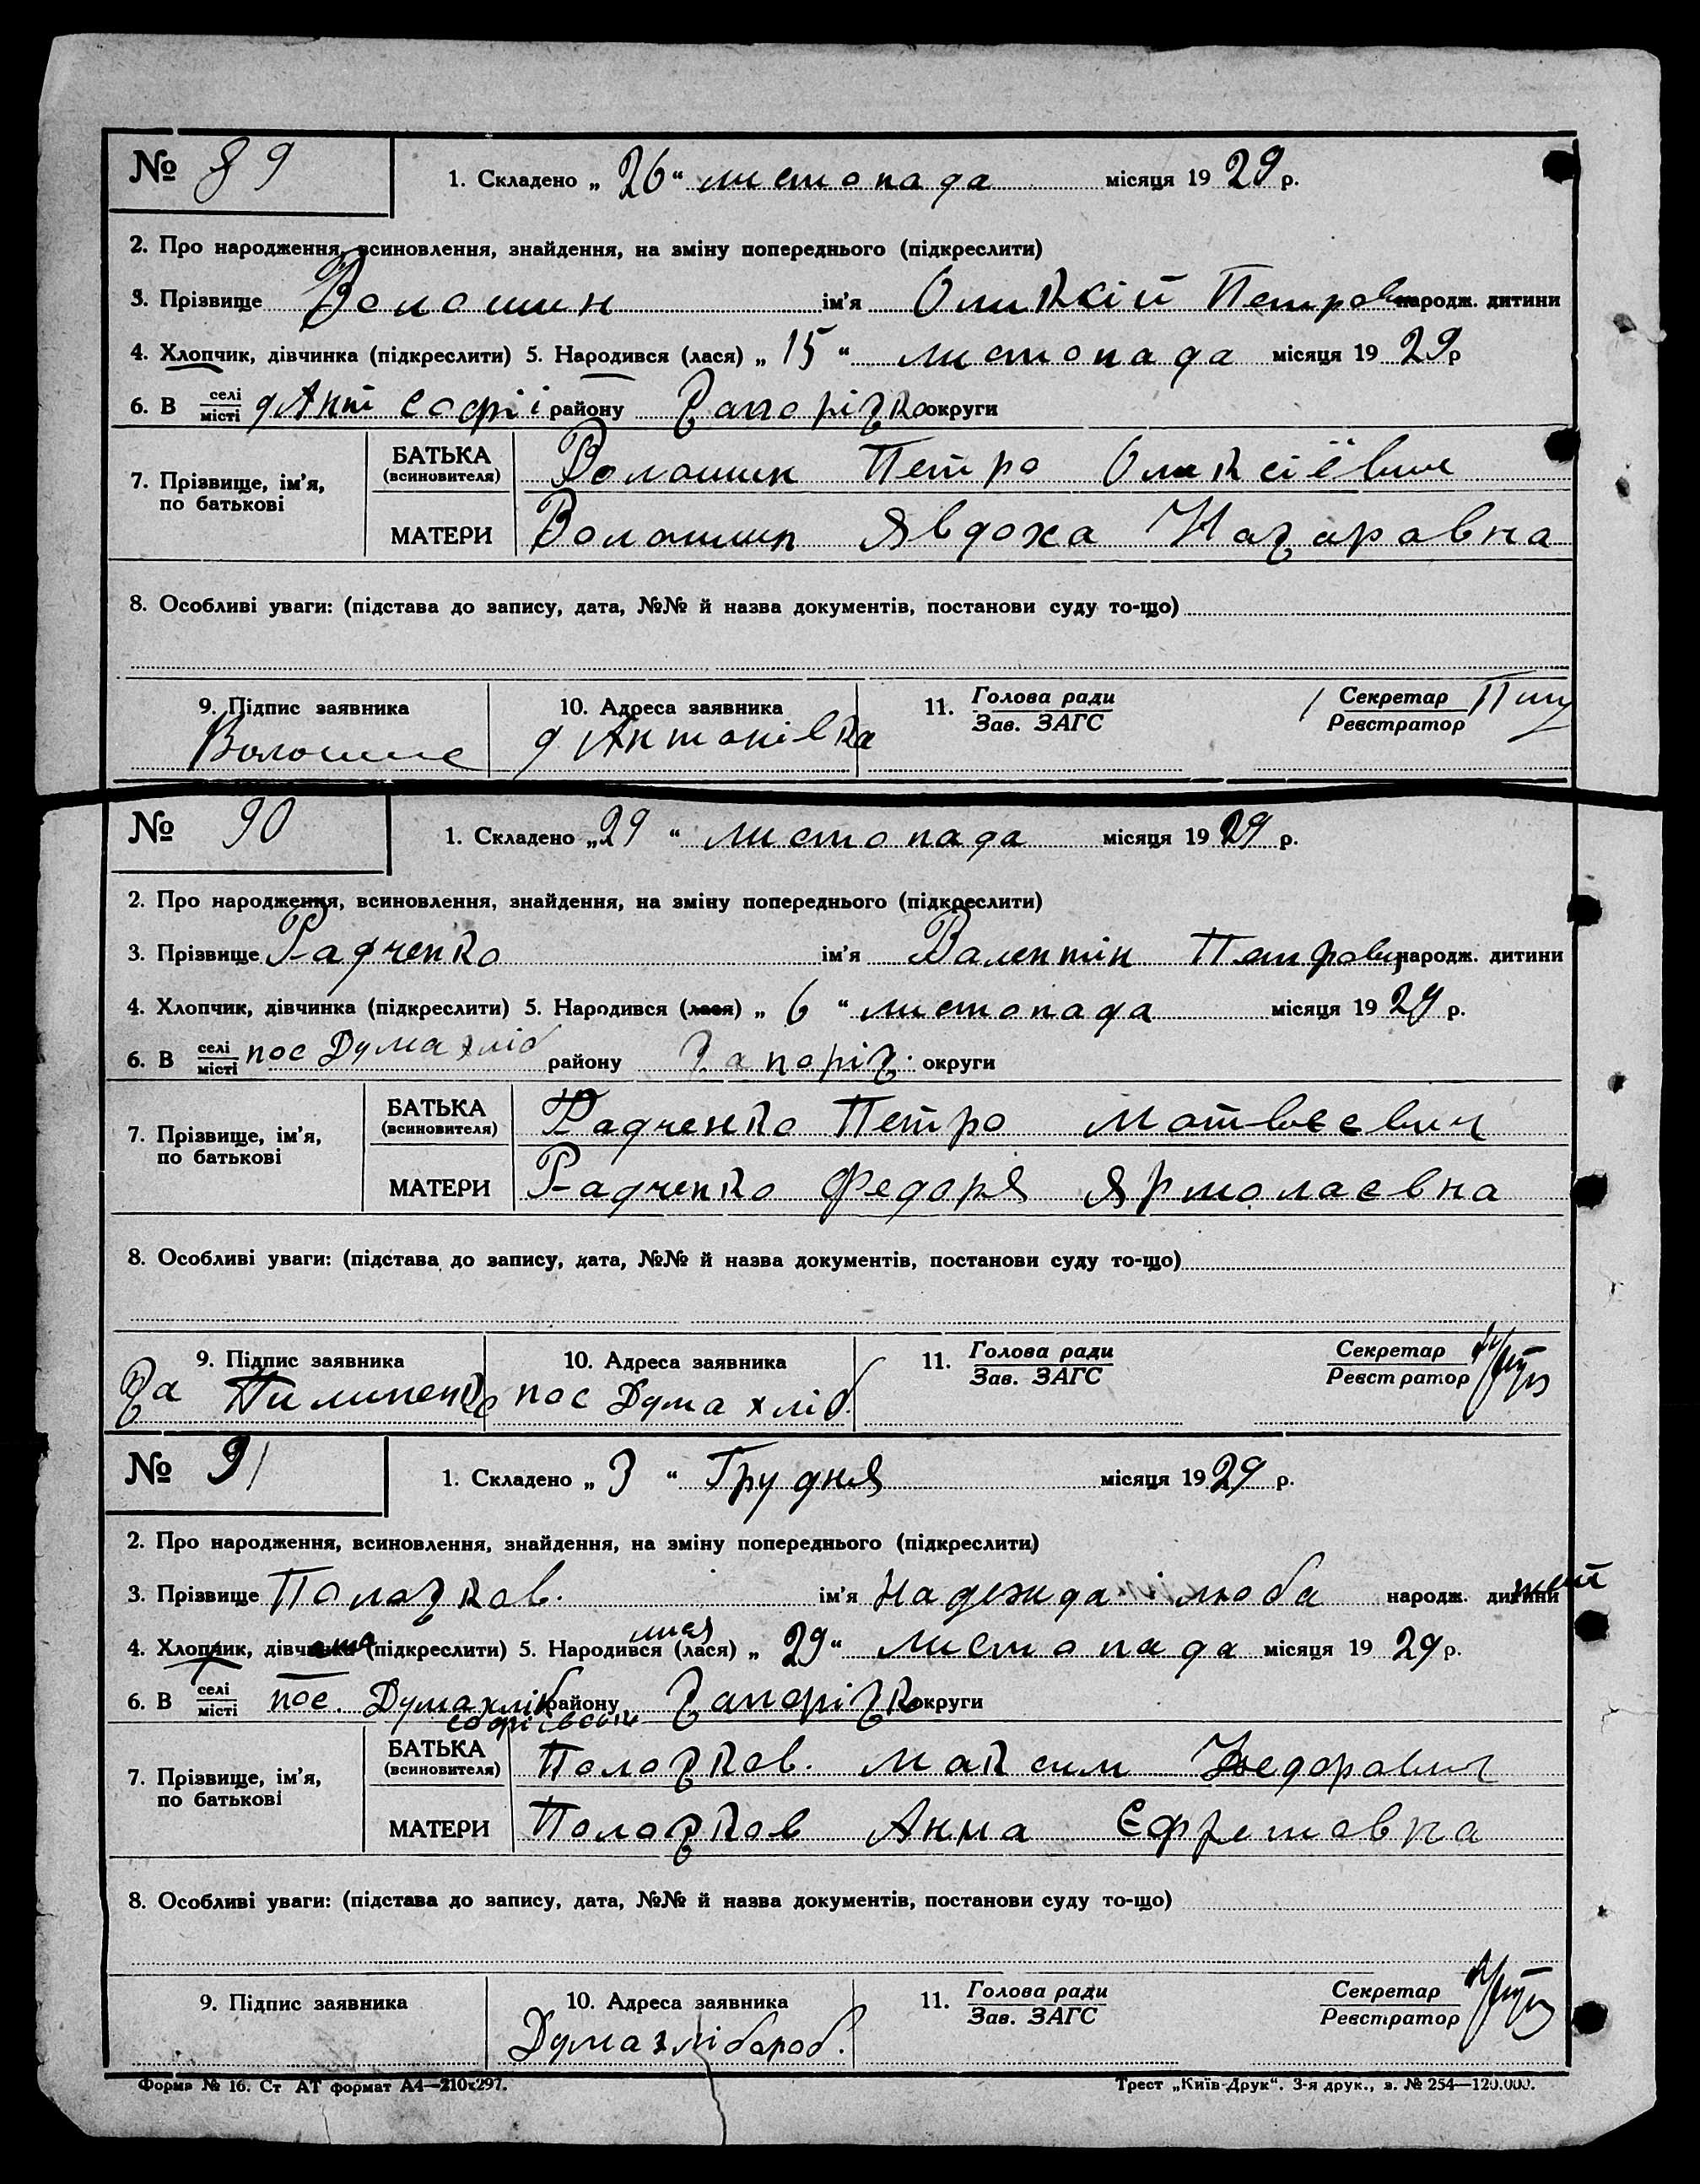 № 89
1. Складено „ 26 “ листопада місяця 19 29 р.
2. Про народження, всиновлення, знайдення, на зміну попереднього (підкреслити)
3. Прізвище Волошин ім’я Оликсій Петрович народж. дитини
4. Хлопчик, дівчинка (підкреслити) 5. Народився (лася) „ 15 “ листопада місяця 19 29 р
6. В селі місті д Ант Софії району Запоріжко округи
7. Прізвище, ім’я, по батькові
БАТЬКА (всиновителя) Волошин Петро Оликсіёвич
МАТЕРИ Волошин Явдоха Назаравна
8. Особливі уваги: (підстава до запису, дата, №№ й назва документів, постанови суду то-що)
9. Підпис заявника 10. Адреса заявника 11. Голова ради Зав. ЗАГС Секретар Реєстратор
Волошин д Антонівка
№ 90
1. Складено „ 29 “ листопада місяця 19 29 р.
2. Про народження, всиновлення, знайдення, на зміну попереднього (підкреслити)
3. Прізвище Радченко ім’я Валентін Петрович народж. дитини
4. Хлопчик, дівчинка (підкреслити) 5. Народився (лася) „ 6 “ листопада місяця 19 29 р.
6. В селі місті пос Дума хліб району Запоріз. округи
7. Прізвище, ім’я, по батькові
БАТЬКА (всиновителя) Радченко Петро Матвієвич
МАТЕРИ Радченко Федоря Ярмолаєвна
8. Особливі уваги: (підстава до запису, дата, №№ й назва документів, постанови суду то-що)
9. Підпис заявника 10. Адреса заявника 11. Голова ради Зав. ЗАГС Секретар Реєстратор
За Пилипенко пос Дума хліб.
№ 91
1. Складено „ 3 “ Грудня місяця 19 29 р.
2. Про народження, всиновлення, знайдення, на зміну попереднього (підкреслити)
3. Прізвище Полозков. ім’я Надежда і люба народж. дитини
4. Хлопчик, дівчата (підкреслити) 5. Народився (лася) „ 29 “ листопада місяця 19 29 р.
6. В селі місті пос. Дума хліб району Запоріжко округи
Софієвский
7. Прізвище, ім’я, по батькові
БАТЬКА (всиновителя) Полозков. Максим Федорович
МАТЕРИ Полозков Анна Єфремовна
8. Особливі уваги: (підстава до запису, дата, №№ й назва документів, постанови суду то-що)
9. Підпис заявника 10. Адреса заявника 11. Голова ради Зав. ЗАГС Секретар Реєстратор
Дума хлібороб.
Форма № 16. Ст АТ формат А4—210х297. Трест „Київ-Друк“. 3-я друк., з. № 254—120.000.